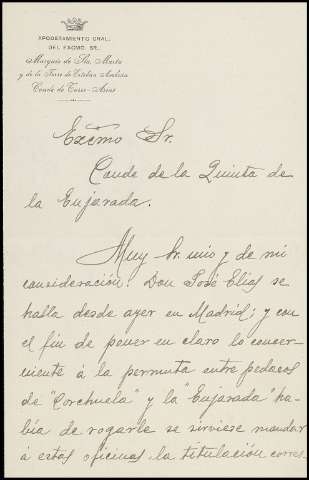 APODERAMIENTO GRAL.
DEL EXCMO. SR.
Marqués de Sta. Marta
y de la Torre de Esteban Hambrán
Conde de Torre-Arias
Exc̃mo Sr.
Conde de la Quinta de
la Enjarada.
Muy Sr. mio y de mi
consideración: Don José Elías se
halla desde ayer en Madrid; y con
el fin de poner en claro lo concer-
niente á la permuta entre pedazos
de "Corchuela" y la "Enjarada" ha-
bía de rogarle se sirviese mandar
á estas oficinas la titulación corres-